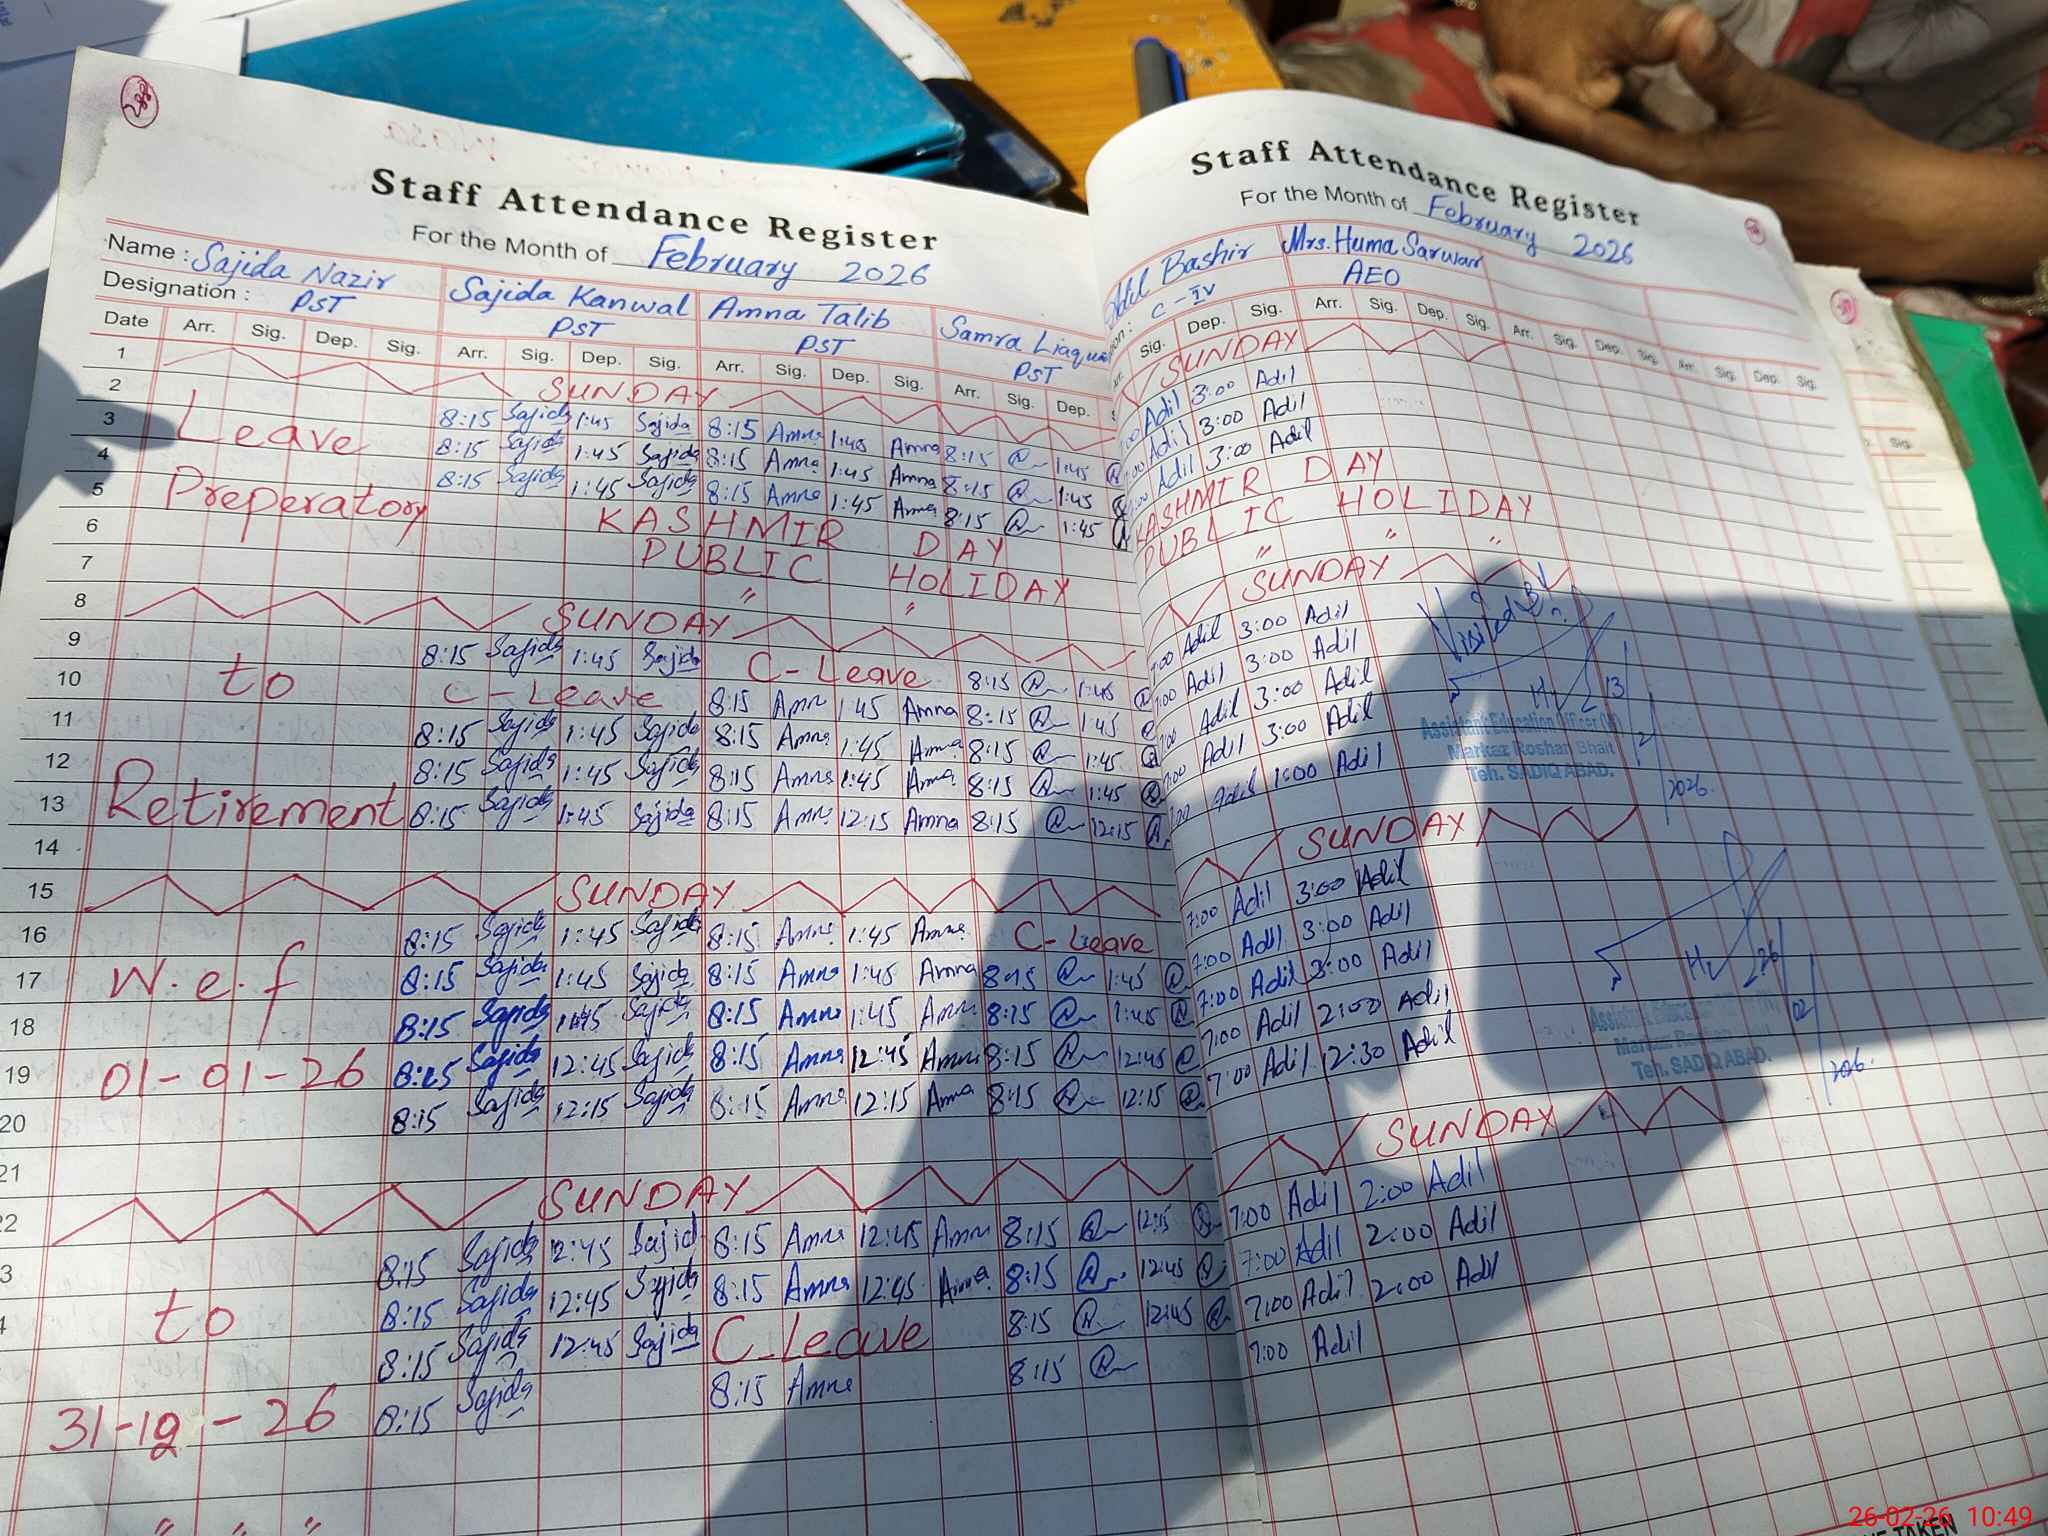 Staff Attendance Register
For the Month of February 2026
Name : Sajida Nazir Sajida Kanwal Amna Talib Samra Liaquat
Designation : PST PST PST PST
Date Arr. Sig. Dep. Sig. Arr. Sig. Dep. Sig. Arr. Sig. Dep. Sig. Arr. Sig. Dep.
1 SUNDAY
2 Leave 8:15 Sajida 1:45 Sajida 8:15 Amna 1:45 Amna 8:15 1:45
3 8:15 Sajida 1:45 Sajida 8:15 Amna 1:45 Amna 8:15 1:45
4 Preperatory 8:15 Sajida 1:45 Sajida 8:15 Amna 1:45 Amna 8:15 1:45
5 KASHMIR DAY
6 PUBLIC HOLIDAY
7 " "
8 SUNDAY
9 to 8:15 Sajida 1:45 Sajida C-Leave 8:15 1:45
10 C-Leave 8:15 Amna 1:45 Amna 8:15 1:45
11 8:15 Sajida 1:45 Sajida 8:15 Amna 1:45 Amna 8:15 1:45
12 8:15 Sajida 1:45 Sajida 8:15 Amna 1:45 Amna 8:15 1:45
13 Retirement 8:15 Sajida 1:45 Sajida 8:15 Amna 12:15 Amna 8:15 12:15
14
15 SUNDAY
16 8:15 Sajida 1:45 Sajida 8:15 Amna 1:45 Amna C-Leave
17 W.e.f 8:15 Sajida 1:45 Sajida 8:15 Amna 1:45 Amna 8:15 1:45
18 8:15 Sajida 1:45 Sajida 8:15 Amna 1:45 Amna 8:15 1:45
19 01-01-26 8:15 Sajida 12:45 Sajida 8:15 Amna 12:45 Amna 8:15 12:45
20 8:15 Sajida 12:15 Sajida 8:15 Amna 12:15 Amna 8:15 12:15
21
22 SUNDAY
8:15 Sajida 12:45 Sajida 8:15 Amna 12:45 Amna 8:15
to 8:15 Sajida 12:45 Sajida 8:15 Amna 12:45 Amna 8:15 12:45
8:15 Sajida 12:45 Sajida C-Leave 8:15 12:45
31-12-26 8:15 Sajida 8:15 Amna 8:15
" " "
Staff Attendance Register
For the Month of February 2026
Adil Bashir Mrs. Huma Sarwar
C-IV AEO
Sig. Dep. Sig. Arr. Sig. Dep. Sig. Arr. Sig. Dep. Sig. Arr. Sig. Dep. Sig.
SUNDAY
Adil 3:00 Adil
7:00 Adil 3:00 Adil
7:00 Adil 3:00 Adil
KASHMIR DAY
PUBLIC HOLIDAY
" " "
SUNDAY
7:00 Adil 3:00 Adil
7:00 Adil 3:00 Adil
7:00 Adil 3:00 Adil
7:00 Adil 3:00 Adil
7:00 Adil 1:00 Adil
Visited By
13/2/2026.
Assistant Education Officer
Markaz Roshan Bhait
Teh. SADIQ ABAD.
SUNDAY
7:00 Adil 3:00 Adil
7:00 Adil 3:00 Adil
7:00 Adil 3:00 Adil
7:00 Adil 2:00 Adil
7:00 Adil 12:30 Adil
26/02/2026.
Markaz Roshan
Teh. SADIQ ABAD.
SUNDAY
7:00 Adil 2:00 Adil
7:00 Adil 2:00 Adil
7:00 Adil 2:00 Adil
7:00 Adil
Sig.
TAKEN
26-02-26 10:49